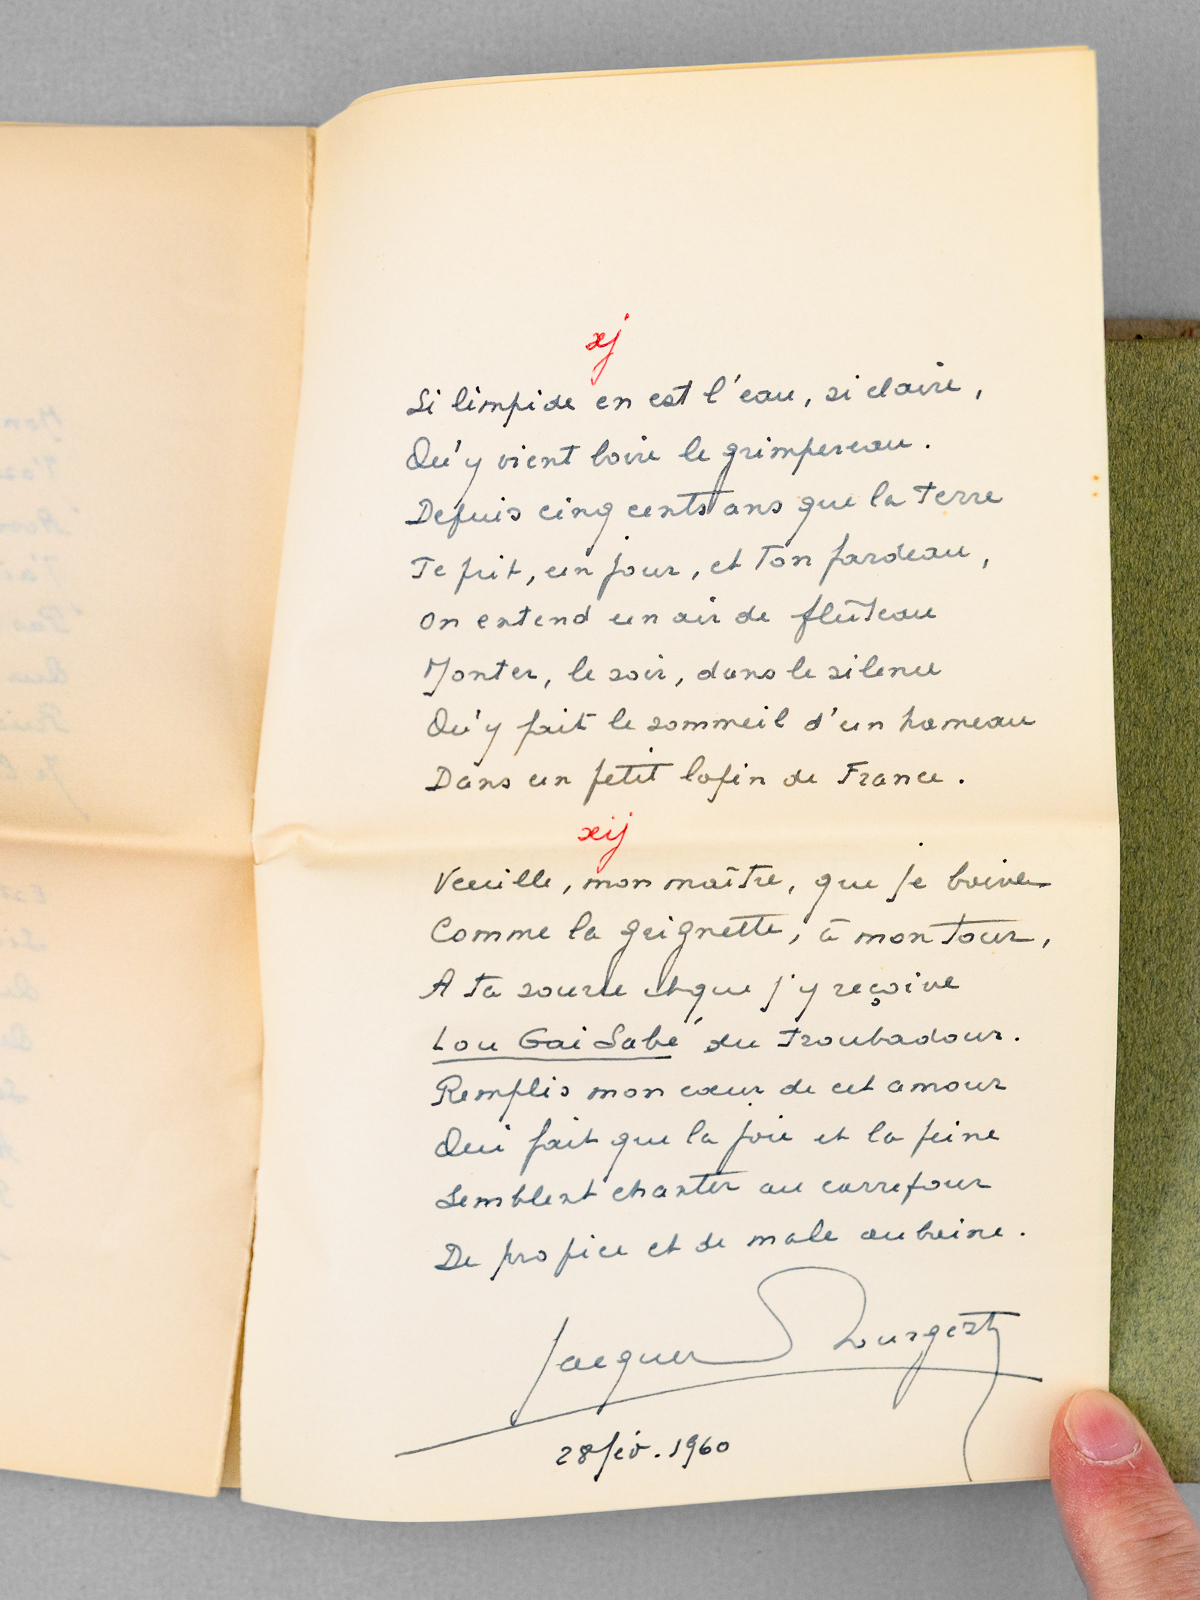 xj
Si limpide en est l'eau, si claire,
Qu'y vient boire le grimpereau.
Depuis cinq cents ans que la terre
Te prit, un jour, et ton fardeau,
On entend un air de flûteau
Monter, le soir, dans le silence
Qu'y fait le sommeil d'un hameau
Dans un petit lopin de France.
xij
Veuille, mon maître, que je boive
Comme la guignette, à mon tour,
A ta source et que j'y reçoive
Lou Gai Sabé du troubadour.
Remplis mon cœur de cet amour
Qui fait que la joie et la peine
Semblent chanter au carrefour
De propice et de male aubeine.
Jacques
28 fév. 1960